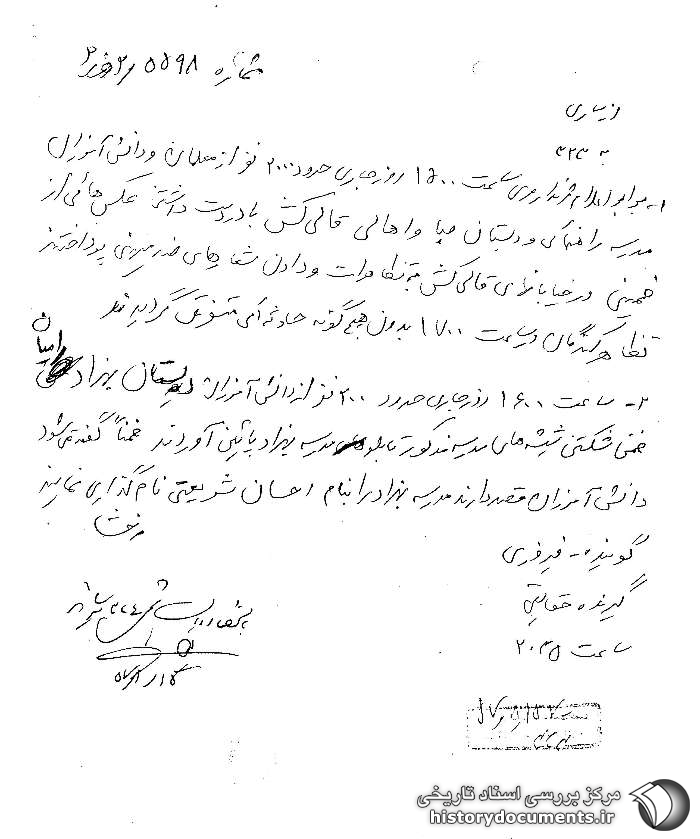 شماره ۵۵۹۸
از ساری
به ۳۲۳
۱- برابر اعلام ژاندارمری ساعت ۱۵۰۰ روز جاری حدود ۲۰۰۰ نفر از معلمان و دانش آموزان
مدرسه راهنمای و دبستان صبا و اهالی قالی کش با در دست داشتن عکس هائی از
خمینی در خیابانهای قالی کش به تظاهرات و دادن شعارهای ضد میهنی پرداختند
تظاهرکنندگان در ساعت ۱۷۰۰ بدون هیچ گونه حادثه ای متفرق گردیدند
۲- ساعت ۱۶۰۰ روز جاری حدود ۲۰۰ نفر از دانش آموزان دبیرستان بهزاد
ضمن شکستن شیشه های مدرسه مذکور تابلو مدرسه بهزاد پائین آوردند ضمناً گفته می شود
دانش آموزان قصد دارند مدرسه بهزاد را بنام احسان شریعتی نام گذاری نمایند
گوینده - فیروزی
گیرنده حقانی
ساعت ۲۰۳۵
مرکز بررسی اسناد تاریخی
historydocuments.ir